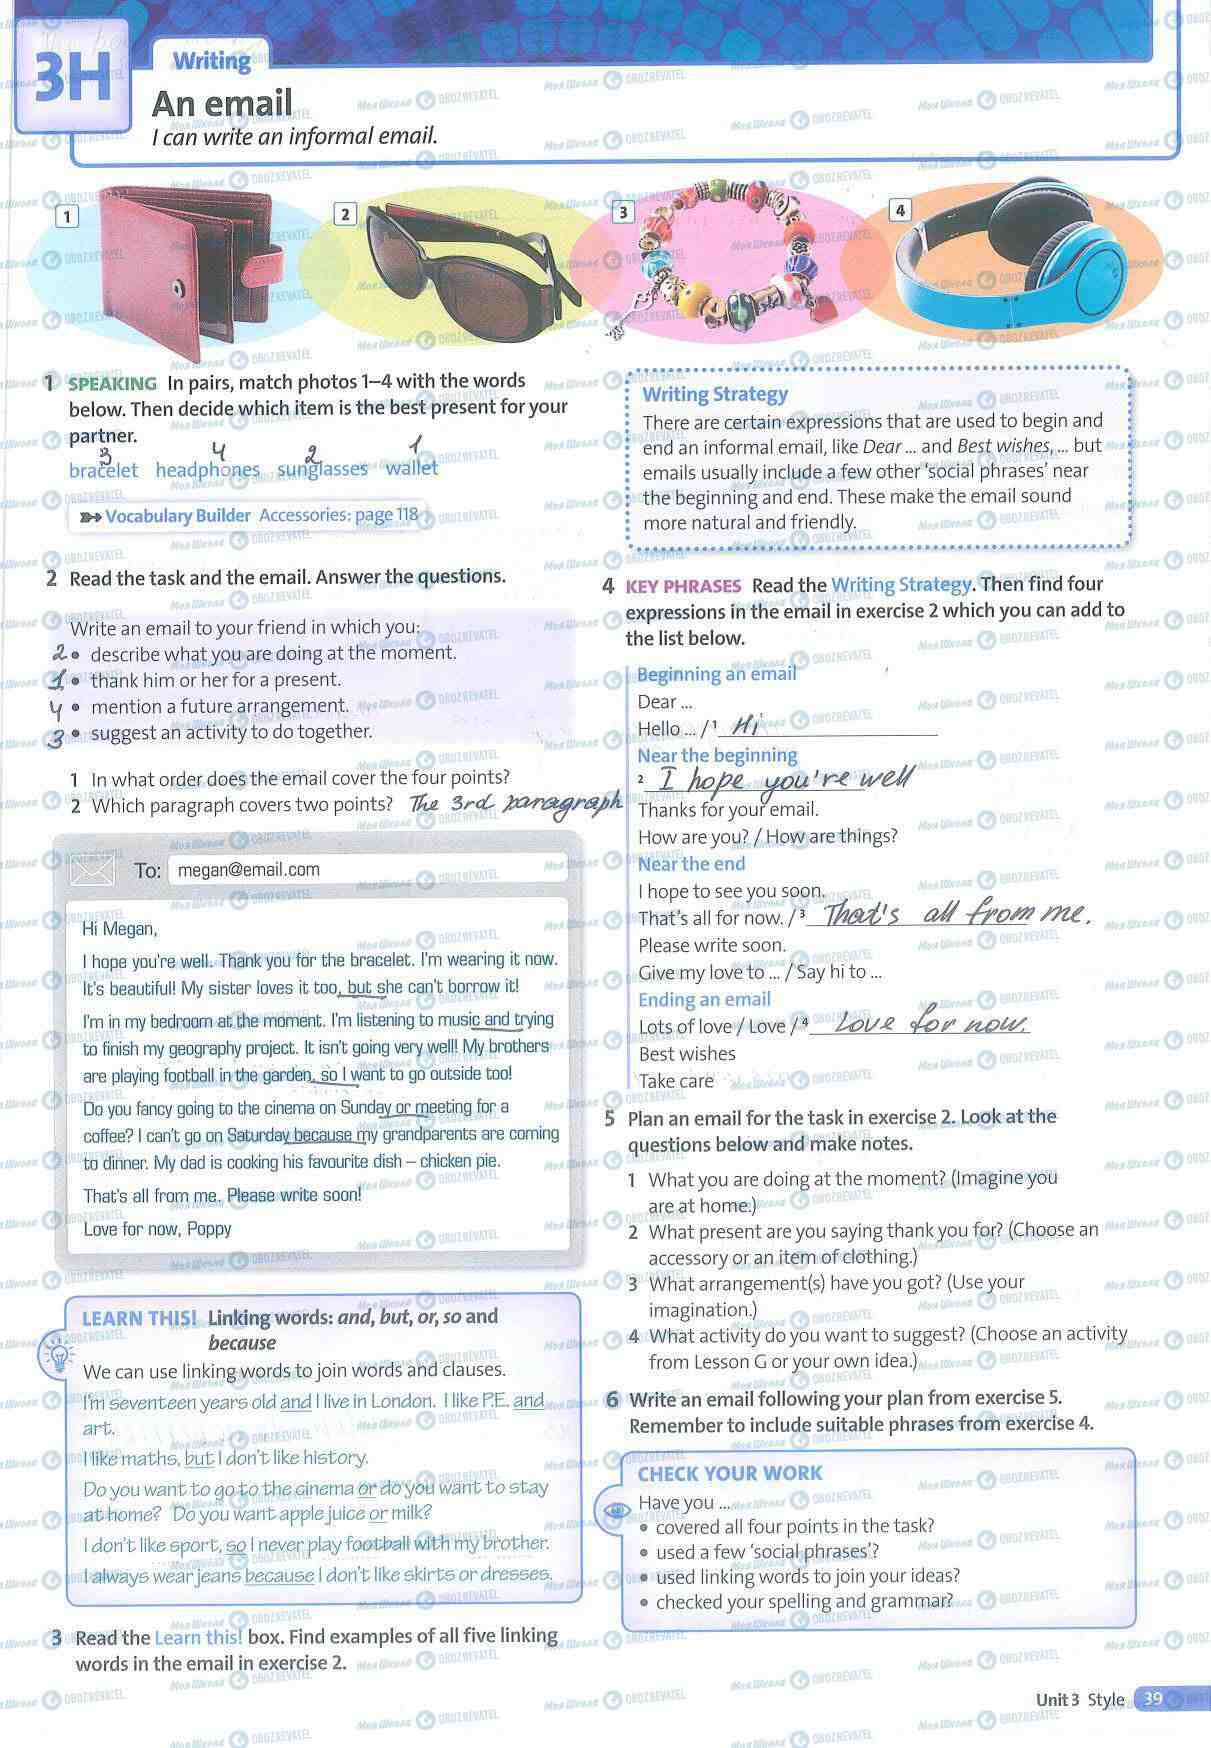 3H
Writing
An email
I can write an informal email.
1
2
3
4
1 SPEAKING In pairs, match photos 1–4 with the words
below. Then decide which item is the best present for your
partner.
3 4 2 1
bracelet headphones sunglasses wallet
Vocabulary Builder Accessories: page 118
2 Read the task and the email. Answer the questions.
Write an email to your friend in which you:
2 • describe what you are doing at the moment.
1 • thank him or her for a present.
4 • mention a future arrangement.
3 • suggest an activity to do together.
1 In what order does the email cover the four points?
2 Which paragraph covers two points? The 3rd paragraph
To: megan@email.com
Hi Megan,
I hope you're well. Thank you for the bracelet. I'm wearing it now.
It's beautiful! My sister loves it too, but she can't borrow it!
I'm in my bedroom at the moment. I'm listening to music and trying
to finish my geography project. It isn't going very well! My brothers
are playing football in the garden, so I want to go outside too!
Do you fancy going to the cinema on Sunday or meeting for a
coffee? I can't go on Saturday because my grandparents are coming
to dinner. My dad is cooking his favourite dish – chicken pie.
That's all from me. Please write soon!
Love for now, Poppy
LEARN THIS! Linking words: and, but, or, so and
because
We can use linking words to join words and clauses.
I'm seventeen years old and I live in London. I like P.E. and
art.
I like maths, but I don't like history.
Do you want to go to the cinema or do you want to stay
at home? Do you want apple juice or milk?
I don't like sport, so I never play football with my brother.
I always wear jeans because I don't like skirts or dresses.
3 Read the Learn this! box. Find examples of all five linking
words in the email in exercise 2.
Writing Strategy
There are certain expressions that are used to begin and
end an informal email, like Dear ... and Best wishes, ... but
emails usually include a few other 'social phrases' near
the beginning and end. These make the email sound
more natural and friendly.
4 KEY PHRASES Read the Writing Strategy. Then find four
expressions in the email in exercise 2 which you can add to
the list below.
Beginning an email
Dear ...
Hello ... / 1 Hi
Near the beginning
2 I hope you're well
Thanks for your email.
How are you? / How are things?
Near the end
I hope to see you soon.
That's all for now. / 3 That's all from me.
Please write soon.
Give my love to ... / Say hi to ...
Ending an email
Lots of love / Love / 4 Love for now.
Best wishes
Take care
5 Plan an email for the task in exercise 2. Look at the
questions below and make notes.
1 What you are doing at the moment? (Imagine you
are at home.)
2 What present are you saying thank you for? (Choose an
accessory or an item of clothing.)
3 What arrangement(s) have you got? (Use your
imagination.)
4 What activity do you want to suggest? (Choose an activity
from Lesson G or your own idea.)
6 Write an email following your plan from exercise 5.
Remember to include suitable phrases from exercise 4.
CHECK YOUR WORK
Have you ...
• covered all four points in the task?
• used a few 'social phrases'?
• used linking words to join your ideas?
• checked your spelling and grammar?
Unit 3 Style 39
Моя Школа OBOZREVATEL